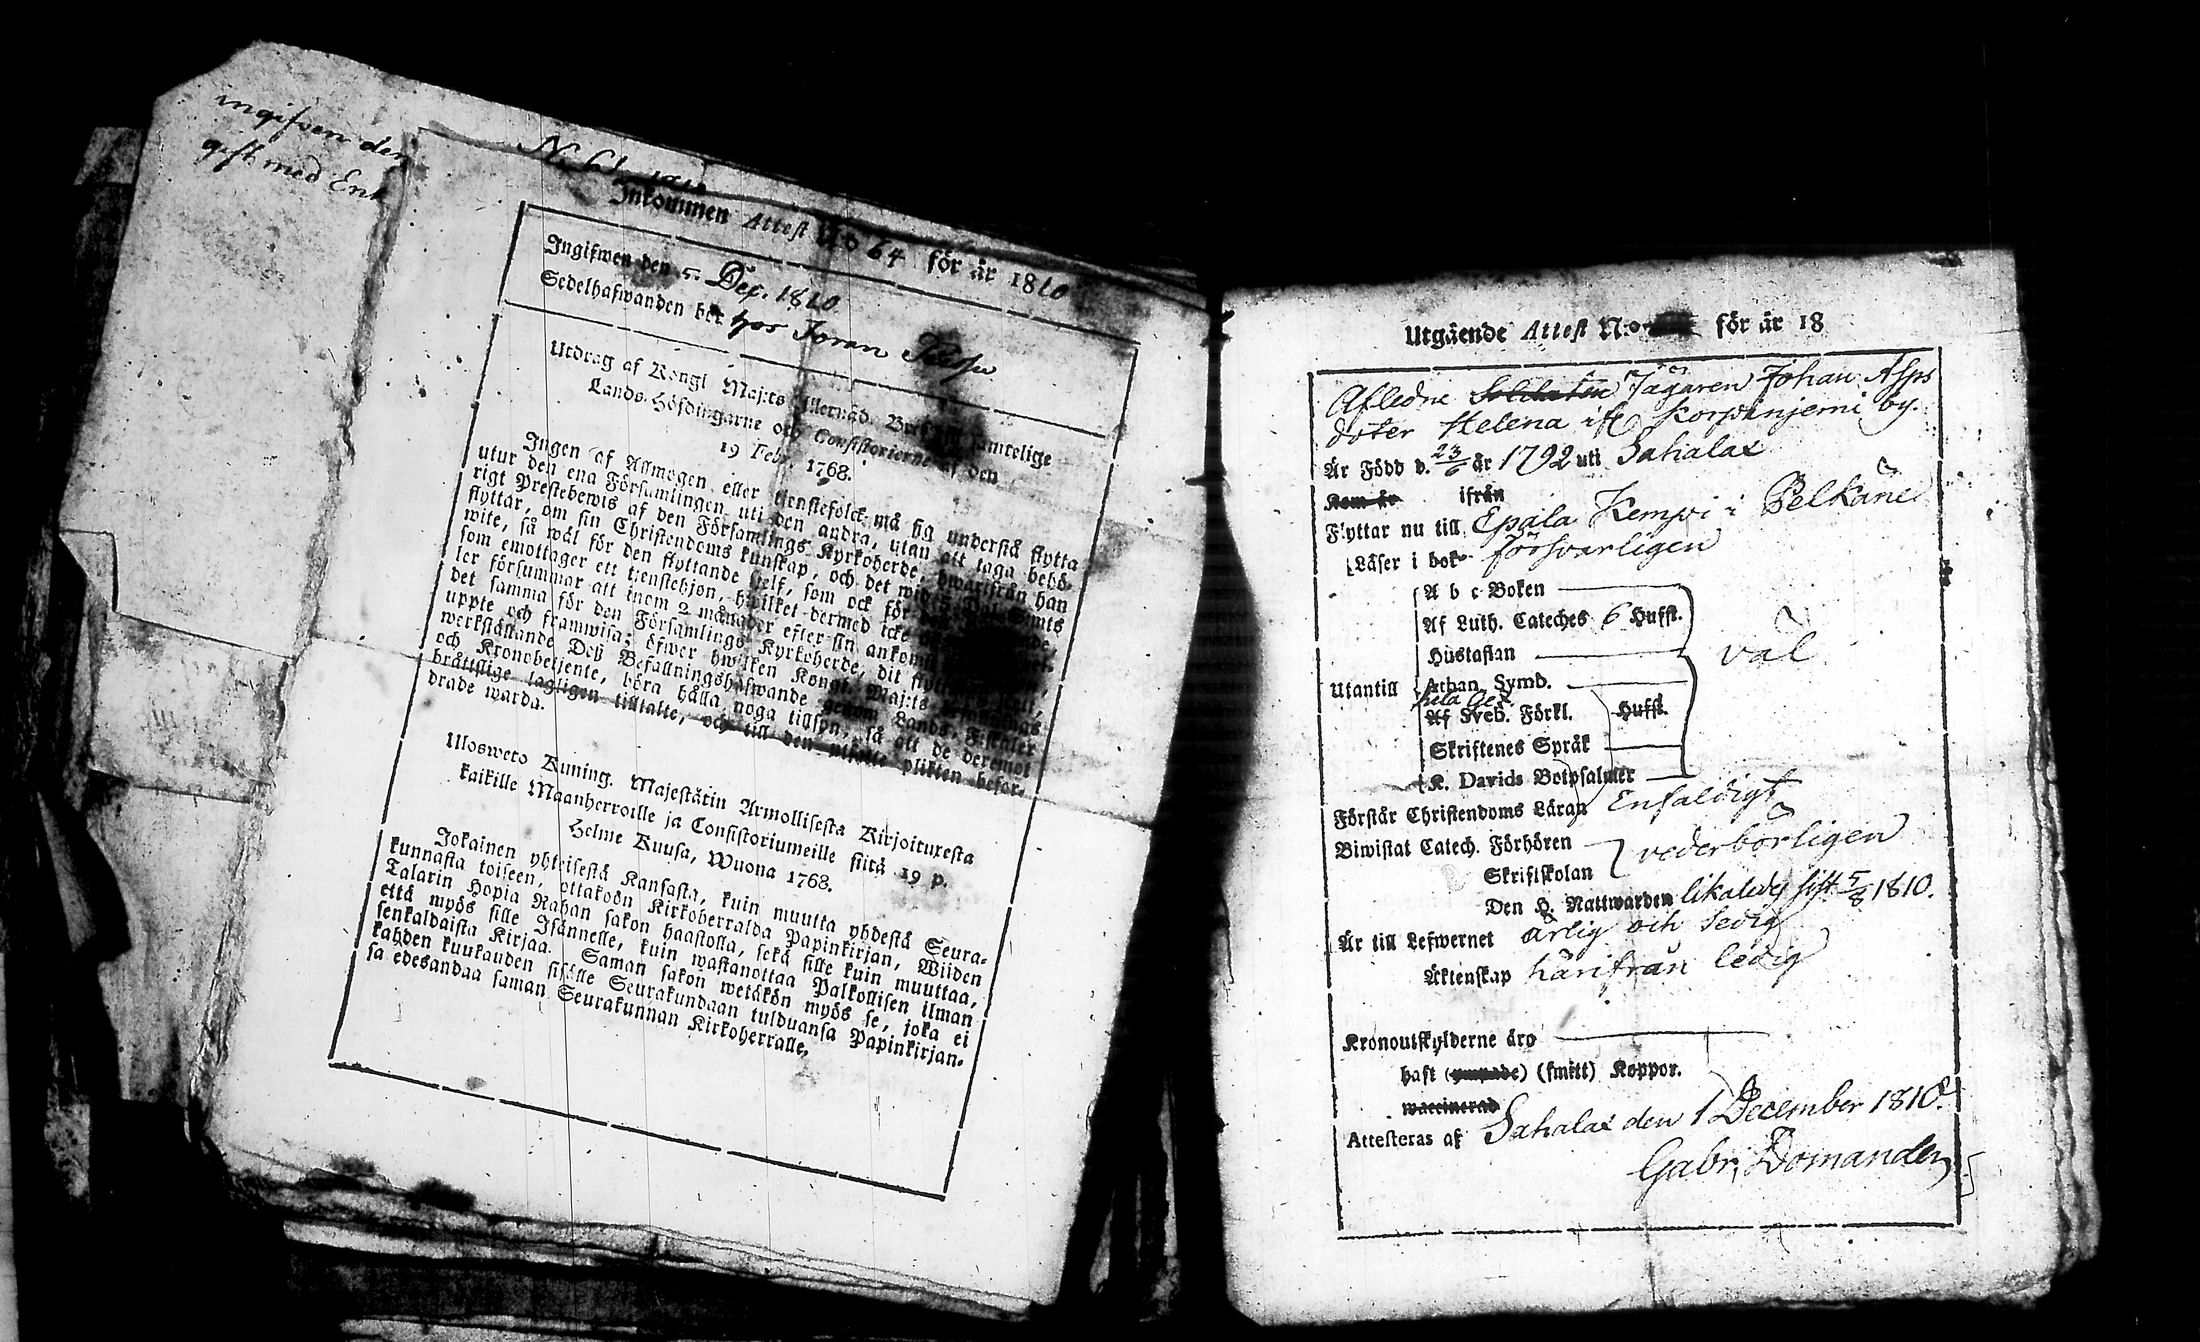 ingifven den
gift med Enk
Inkommen Attest N:o 64 för år 1810
Ingifwen den 5 Dec. 1810
Sedelhafwanden bor hos Joran
Utdrag af Kongl Maj:ts Allernåd. Bref till samtelige
Lands-Höfdingarne och Consistorierne af den
19 Febr. 1768.
Ingen af Allmogen eller tjenstefolck må sig understå flytta
utur den ena Församlingen uti den andra, utan att taga behö-
rigt Prestebewis af den Församlings Kyrkoherde, hwarifrån han
flyttar, om sin Christendoms kunskap, och det wid 5 Dal. S:mts
wite, så wäl för den flyttande self, som ock för
som emottager ett tjenstehjon, hwilket dermed icke
ler försummar att inom 2 månader efter sin ankomst
det samma för den Församlings Kyrkoherde, dit
uppte och framwisa; öfwer hwilken Kongl. Maj:ts
werkställande Deß Befallningshafwande genom Lands-Fiskaler
och Kronobetjente, böra hålla noga tillsyn, så att de deremot
bråttslige lagligen tilltalte, och till den utsatte plikten befor-
drade warda.
Ulosweto Kuning. Majestätin Armollisesta Kirjoituxesta
kaikille Maanherroille ja Consistoriumeille siitä 19 p.
Helme Kuusa, Wuona 1768.
Jokainen yhteisestä Kansasta, kuin muutta yhdestä Seura-
kunnasta toiseen, ottakoon Kirkoherralda Papinkirjan, Wiiden
Talarin Hopia Rahan sakon haastolla, sekä sille kuin muuttaa,
että myös sille Isännelle, kuin wastanottaa Palkollisen ilman
senkaldaista Kirjaa. Saman sakon wetäkön myös se, joka ei
kahden kuukauden sisälle Seurakundaan tulduansa Papinkirjan-
sa edesandaa saman Seurakunnan Kirkoherralle.
Utgående Attest N:o för år 18
Afledne Soldaten Jägaren Johan Asps
doter Helena ifr Korpiinjemi by.
Är Född d. 23/6 år 1792 uti Sahalax
Kom år ifrån
Flyttar nu till Epala Kempi i Pelkäne
Läser i bok försvarligen
A b c Boken
Af Luth. Cateches 6 Hufst.
Hustaflan
väl
Utantill Athan. Symb.
hela
Af Sveb. Förkl. Hufst.
Skriftenes Språk
K. Davids Botpsalmer
Förstår Christendoms Läran Enfaldigt
Biwistat Catech. Förhören
vederbörligen
Skriftskolan
Den H. Nattwarden likaledes sist 5/8 1810.
Är till Lefwernet ärlig och sedig
Äktenskap härifrån ledig
Kronoutskylderne äro
haft (ympade) (smitt) Koppor.
waccinerad
Attesteras af Sahalax den 1 December 1810.
Gabr. Domander